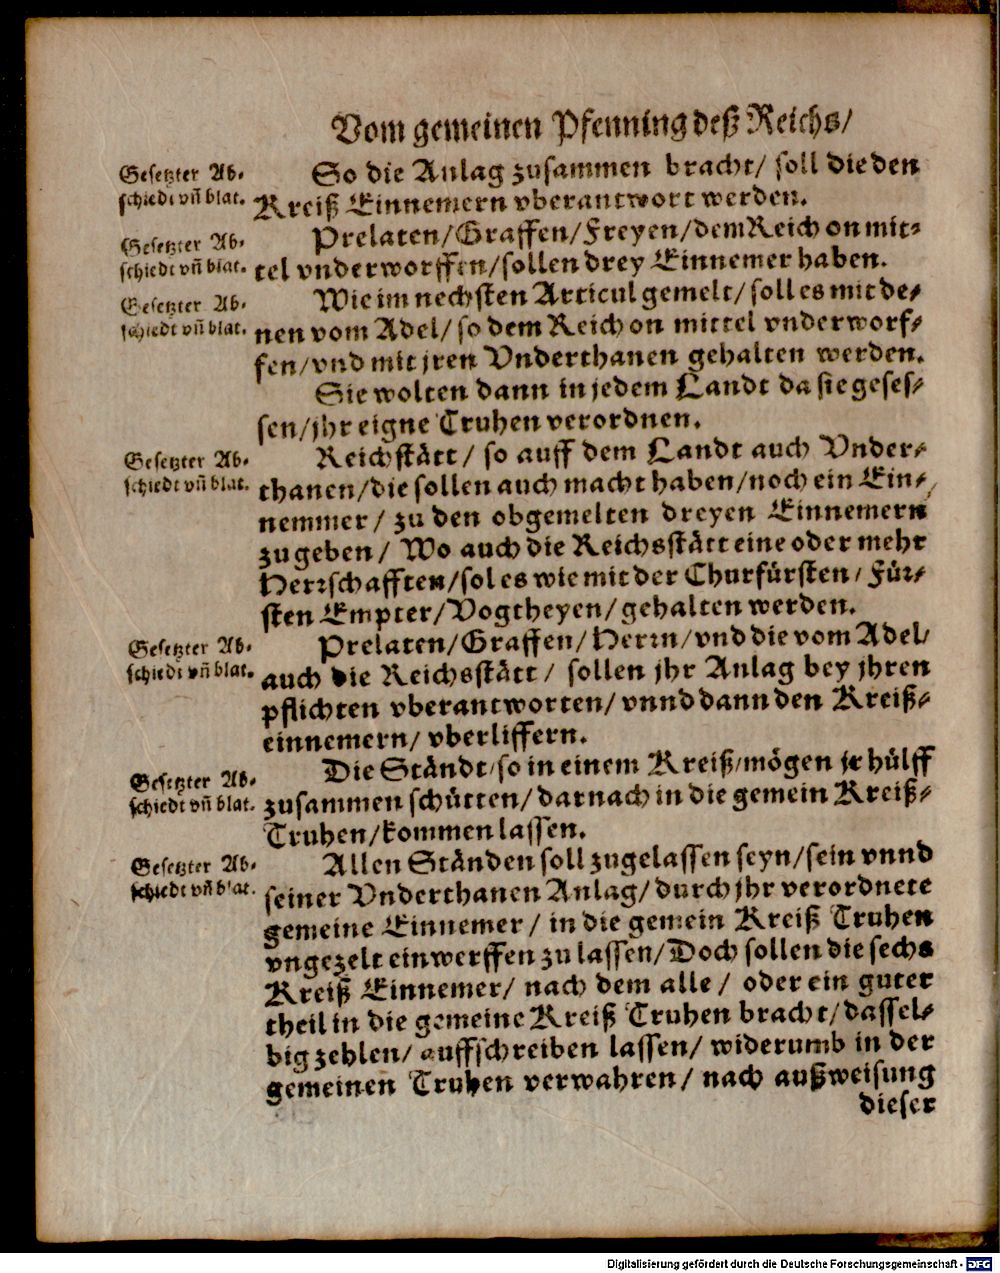 Vom gemeinen Pfenning deß Reichs/
Gesetzter Ab-
schiedt vn̄ blat.
So die Anlag zusammen bracht/ soll die den
Kreiß Einnemern vberantwort werden.
Gesetzter Ab-
schiedt vn̄ blat.
Prelaten/Graffen/Freyen/dem Reich on mit-
tel vnderworffen/sollen drey Einnemer haben.
Gesetzter Ab-
schiedt vn̄ blat.
Wie im nechsten Articul gemelt/ soll es mit de-
nen vom Adel/ so dem Reich on mittel vnderworf-
fen/vnd mit jren Vnderthanen gehalten werden.
Sie wolten dann in jedem Landt da sie geses-
sen/jhr eigne Truhen verordnen.
Gesetzter Ab-
schiedt vn̄ blat.
Reichstätt/ so auff dem Landt auch Vnder-
thanen/die sollen auch macht haben/noch ein Ein-
nemmer/ zu den obgemelten dreyen Einnemern
zu geben/ Wo auch die Reichsstätt eine oder mehr
Herrschafften/sol es wie mit der Churfürsten/ Für-
sten Empter/Vogtheyen/gehalten werden.
Gesetzter Ab-
schiedt vn̄ blat.
Prelaten/Graffen/Herrn/vnd die vom Adel/
auch die Reichsstätt/ sollen jhr Anlag bey jhren
pflichten vberantworten/ vnnd dann den Kreiß-
einnemern/ vberliffern.
Gesetzter Ab-
schiedt vn̄ blat.
Die Ständt/so in einem Kreiß/mögen jr hülff
zusammen schütten/darnach in die gemein Kreiß-
Truhen/kommen lassen.
Gesetzter Ab-
schiedt vn̄ blat.
Allen Ständen soll zugelassen seyn/sein vnnd
seiner Vnderthanen Anlag/durch jhr verordnete
gemeine Einnemer/ in die gemein Kreiß Truhen
vngezelt einwerffen zu lassen/Doch sollen die sechs
Kreiß Einnemer/ nach dem alle/ oder ein guter
theil in die gemeine Kreiß Truhen bracht/dassel-
big zehlen/ auffschreiben lassen/ widerumb in der
gemeinen Truhen verwahren/ nach außweisung
dieser
Digitalisierung gefördert durch die Deutsche Forschungsgemeinschaft - DFG